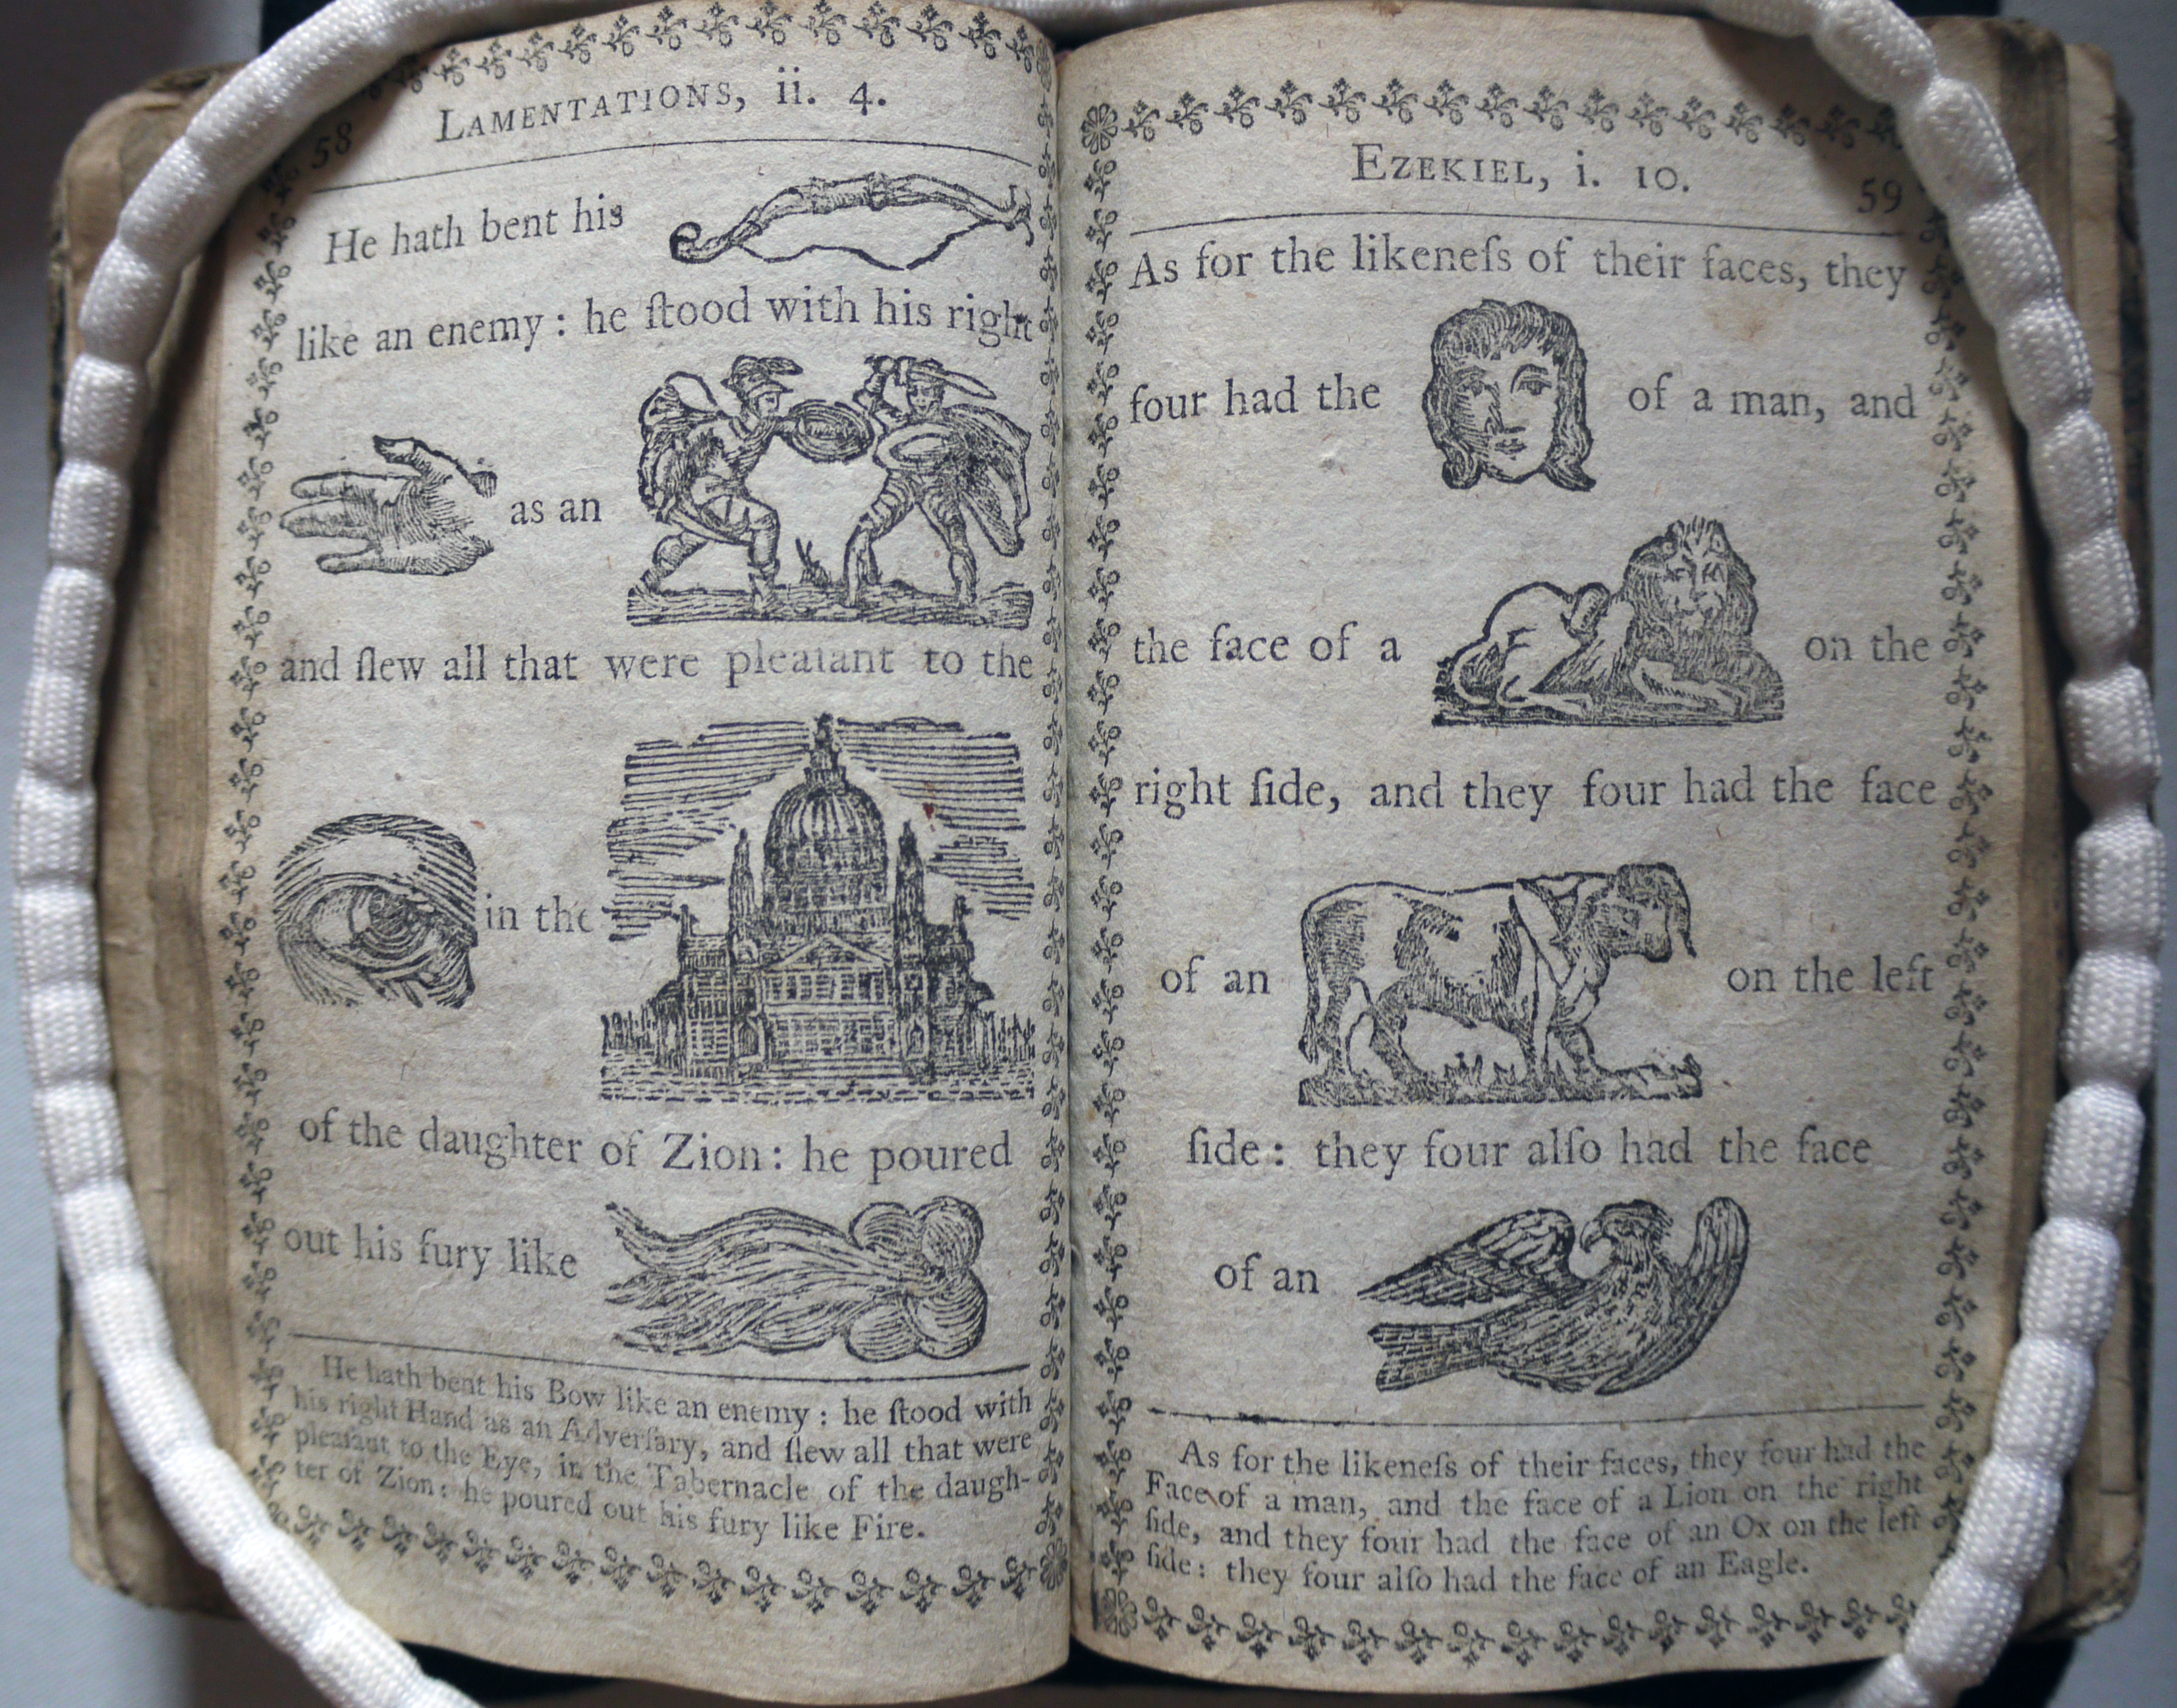 58
LAMENTATIONS, ii. 4.
He hath bent his
like an enemy : he ſtood with his right
as an
and ſlew all that were pleaſant to the
in the
of the daughter of Zion: he poured
out his fury like
He hath bent his Bow like an enemy : he ſtood with
his right Hand as an Adverſary, and ſlew all that were
pleaſant to the Eye, in the Tabernacle of the daugh-
ter of Zion: he poured out his fury like Fire.
EZEKIEL, i. 10.
59
As for the likeneſs of their faces, they
four had the of a man, and
the face of a on the
right ſide, and they four had the face
of an on the left
ſide: they four alſo had the face
of an
As for the likeneſs of their faces, they four had the
Face of a man, and the face of a Lion on the right
ſide, and they four had the face of an Ox on the left
ſide: they four alſo had the face of an Eagle.